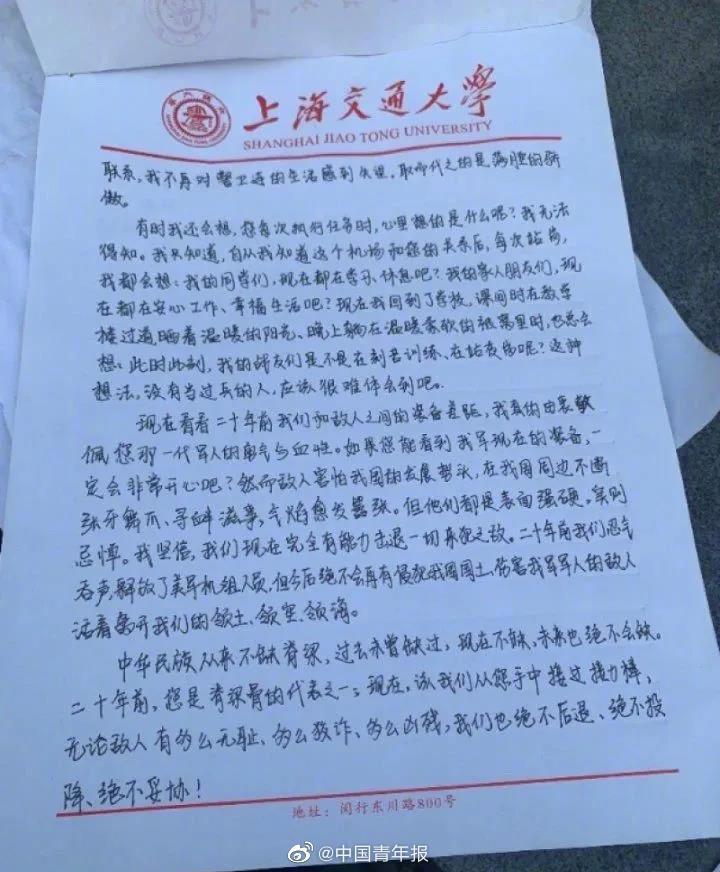 上海交通大學
SHANGHAI JIAO TONG UNIVERSITY
联系,我不再对警卫连的生活感到失望,取而代之的是满腔的骄
傲。
有时我还会想,您每次执行任务时,心里想的是什么呢?我无法
得知。我只知道,自从我知道这个机场和您的关系后,每次站岗,
我都会想:我的同学们,现在都在学习、休息吧?我的家人朋友们,现
在都在安心工作、幸福生活吧?现在我回到了学校,课间时在教学
楼过道晒着温暖的阳光、晚上躺在温暖柔软的被窝里时,也总会
想:此时此刻,我的战友们是不是在刻苦训练、在站夜岗呢?这种
想法,没有当过兵的人,应该很难体会到吧。
现在看看二十年前我们和敌人之间的装备差距,我真的由衷敬
佩您那一代军人的勇气与血性。如果您能看到我军现在的装备,一
定会非常开心吧?然而敌人害怕我国的发展势头,在我国周边不断
张牙舞爪、寻衅滋事,气焰愈发嚣张。但他们都是表面强硬,实则
忌惮。我坚信,我们现在完全有能力击退一切来犯之敌。二十年前我们忍气
吞声,释放了美军机组人员,但今后绝不会再有侵犯我国国土、伤害我军军人的敌人
活着离开我们的领土、领空、领海。
中华民族从来不缺脊梁,过去未曾缺过,现在不缺,未来也绝不会缺。
二十年前,您是脊梁骨的代表之一;现在,该我们从您手中接过接力棒,
无论敌人有多么无耻、多么狡诈、多么凶残,我们也绝不后退、绝不投
降、绝不妥协!
地址:闵行东川路800号
@中国青年报